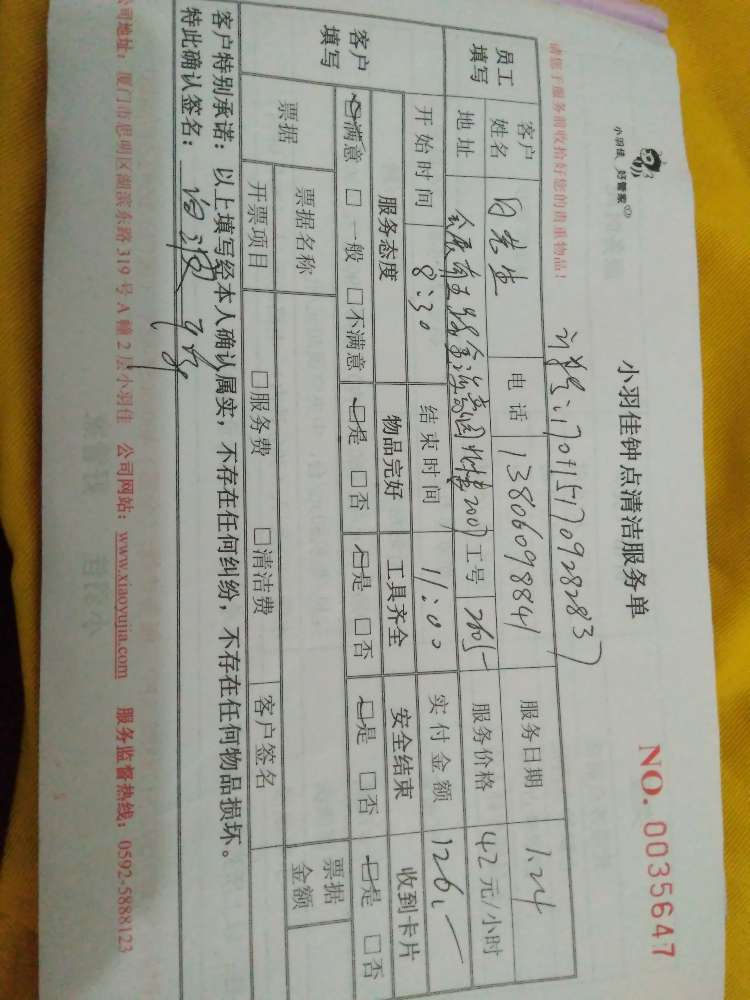 小羽佳 好管家
小羽佳钟点清洁服务单
NO. 0035647
1701151709282837
请您于服务前收拾好您的贵重物品!
员工填写 客户姓名 白先生 电话 13806098841 服务日期 1.24
地址 2007 工号 2605 服务价格 42元/小时
开始时间 8:30 结束时间 11:00 实付金额 126.-
客户填写 服务态度 物品完好 工具齐全 安全结束 收到卡片
☑满意 □一般 □不满意 ☑是 □否 ☑是 □否 ☑是 □否 ☑是 □否
票据 票据名称 票据金额
开票项目 □服务费 □清洁费 客户签名
客户特别承诺:以上填写经本人确认属实,不存在任何纠纷,不存在任何物品损坏。
特此确认签名:
公司地址:厦门市思明区湖滨东路319号A幢2层小羽佳 公司网站:www.xiaoyujia.com 服务监督热线:0592-5888123